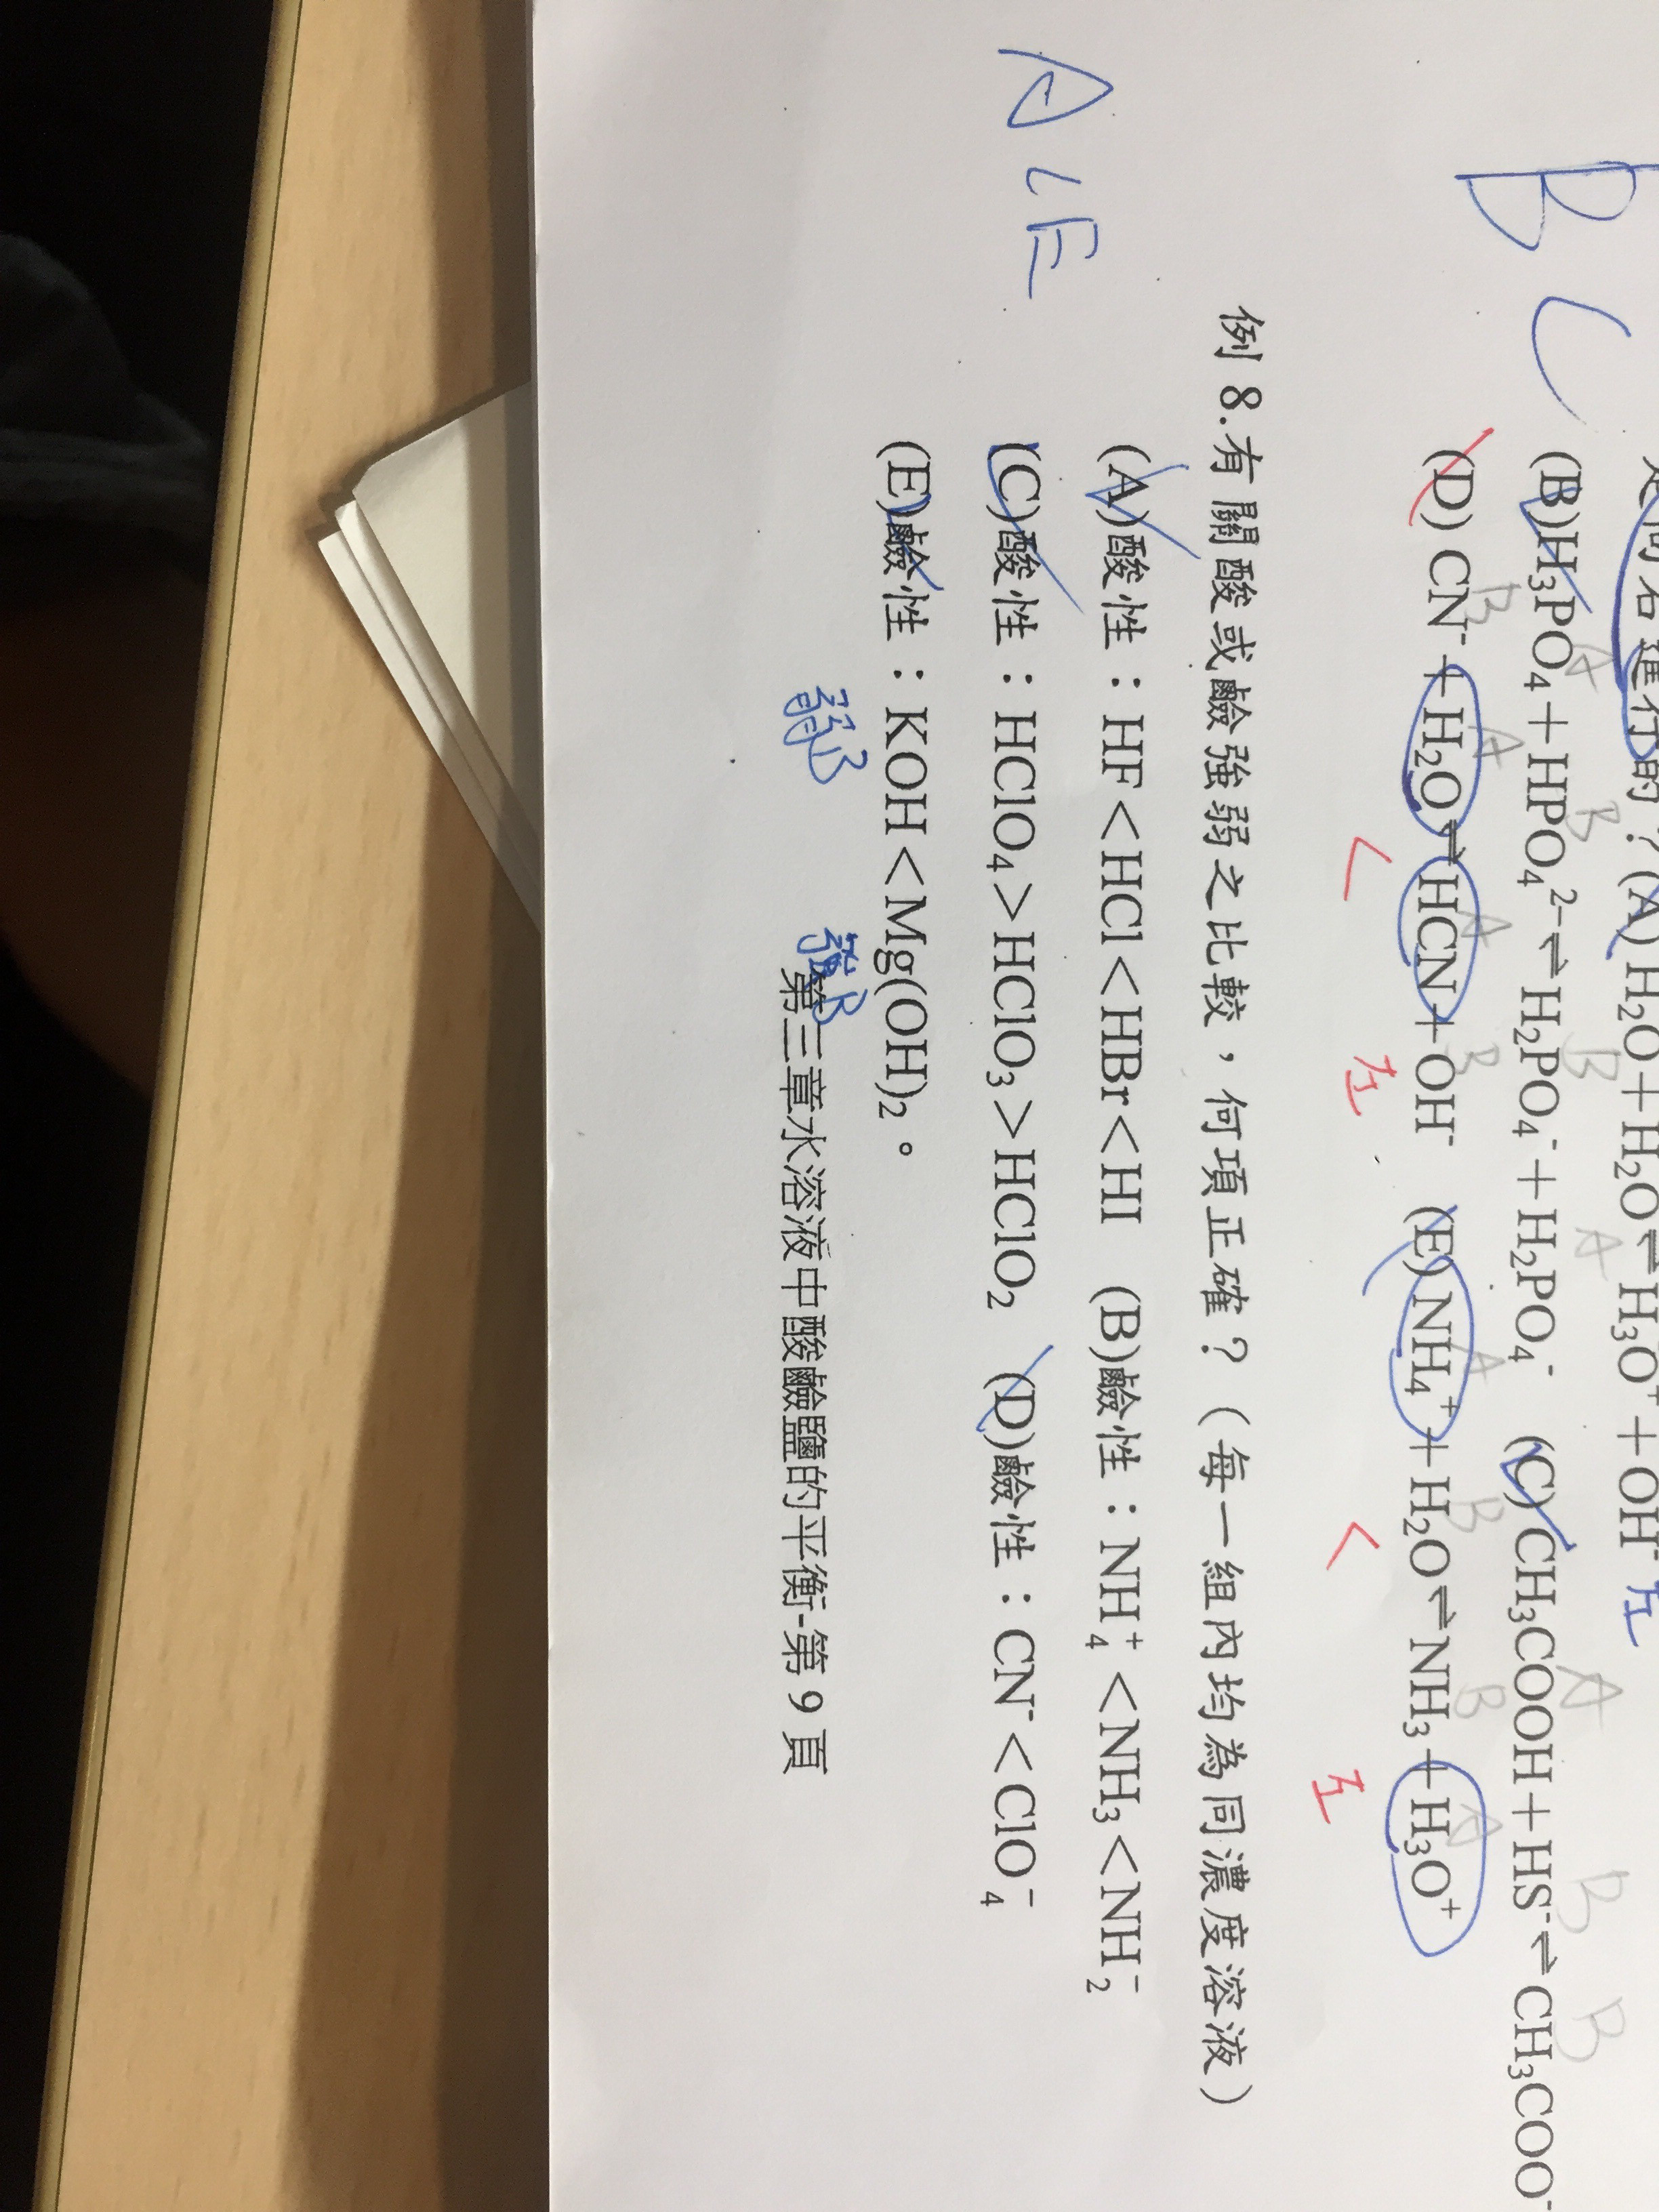 是向右進行的？(A) H₂O＋H₂O⇌H₃O⁺＋OH⁻ 左
B C
(B)H₃PO₄＋HPO₄²⁻⇌H₂PO₄⁻＋H₂PO₄⁻ (C) CH₃COOH＋HS⁻⇌CH₃COO⁻
(D) CN⁻＋H₂O⇌HCN＋OH⁻ (E) NH₄⁺＋H₂O⇌NH₃＋H₃O⁺
< 左 < 左
例 8.有關酸或鹼強弱之比較，何項正確？（每一組內均為同濃度溶液）
(A)酸性：HF＜HCl＜HBr＜HI (B)鹼性：NH₄⁺＜NH₃＜NH₂⁻
A C E
(C)酸性：HClO₄＞HClO₃＞HClO₂ (D)鹼性：CN⁻＜ClO₄⁻
(E)鹼性：KOH＜Mg(OH)₂。
弱B 強B
第三章水溶液中酸鹼鹽的平衡-第 9 頁